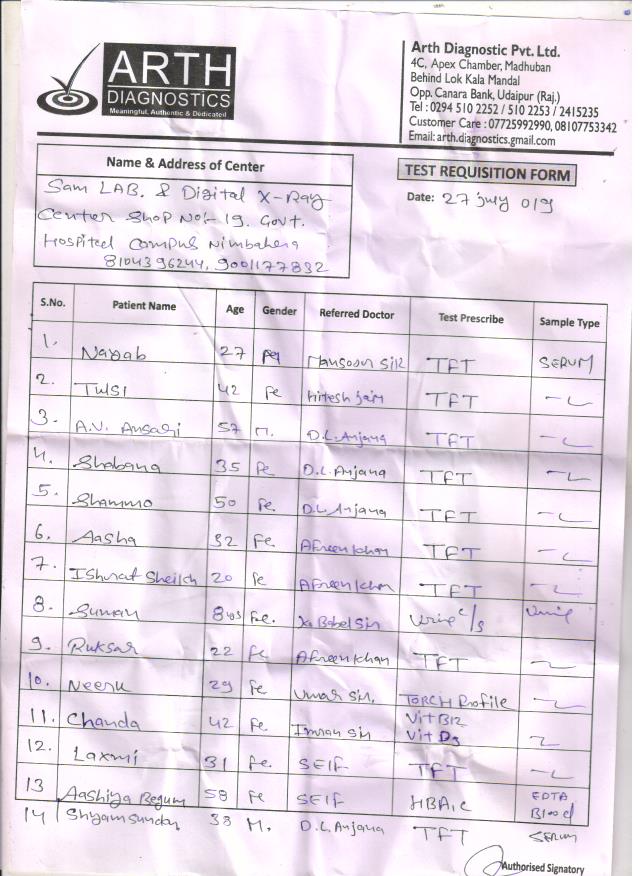 ARTH
DIAGNOSTICS
Meaningful, Authentic & Dedicated
Arth Diagnostic Pvt. Ltd.
4C, Apex Chamber, Madhuban
Behind Lok Kala Mandal
Opp. Canara Bank, Udaipur (Raj.)
Tel : 0294 510 2252 / 510 2253 / 2415235
Customer Care : 07725992990, 08107753342
Email: arth.diagnostics.gmail.com
Name & Address of Center
Sam LAB. & Digital X-Ray
Center Shop No:- 19. Govt.
Hospital Campus Nimbahera
8104396244, 9001177832
TEST REQUISITION FORM
Date: 27 July 019
S.No. Patient Name Age Gender Referred Doctor Test Prescribe Sample Type
1. Nayab 27 Mansoori Sir TFT SERUM
2. Tulsi 42 Fe Hitesh Jain TFT
3. A.V. Ansari 57 M. D.L. Anjana TFT
4. Shabana 35 Fe D.L. Anjana TFT
5. Shammo 50 Fe. D.L. Anjana TFT
6. Aasha 32 Fe. Afreen Khan TFT
7. Ishrat Sheikh 20 Fe Afreen Khan TFT
8. Suman Fe. Babel Sir Urine C/S Urine
9. Ruksar 22 Fe Afreen Khan TFT
10. Neeru 29 Fe Umar Sir. TORCH Profile
11. Chanda 42 Fe. Imran Sir Vit B12
Vit D3
12. Laxmi 31 Fe. SELF TFT
13 Aashiya Begum 58 Fe SELF HBA1C EDTA
Blood
14 Shyam Sunder 38 M. D.L. Anjana TFT SERUM
Authorised Signatory